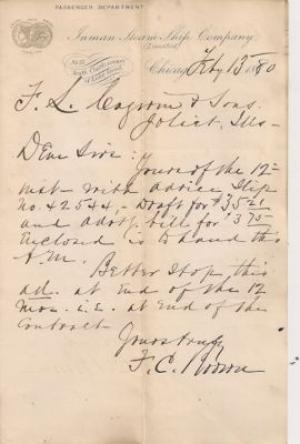 PASSENGER DEPARTMENT
Inman Steam Ship Company,
(Limited)
Chicago, Feby 13th 1880
F. L. & Sons.
Joliet, Ills—
Dear Sirs: Yours of the 12th
inst— with advice slip
No. 42544,— Draft for $35 21
and advtg. bill for $3 75
Enclosed is to hand this
A.M.
Better Stop this
ad. at End of the 12
Mos. i.e. at End of the
Contract—
Yours truly
F. C. Brown